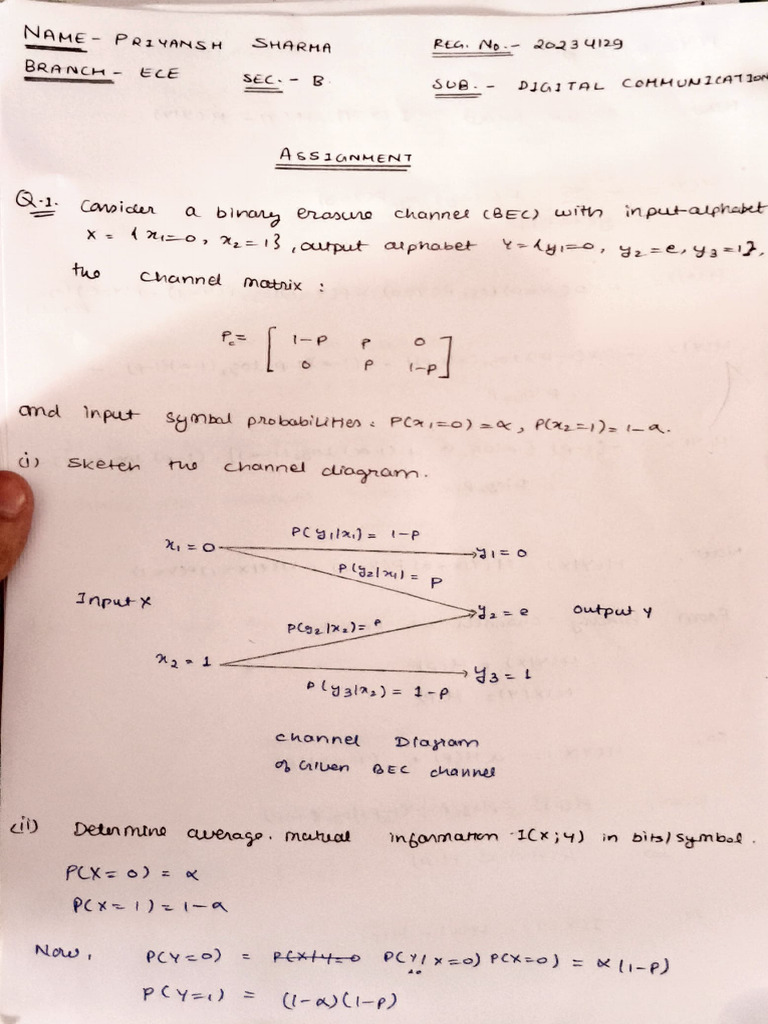 NAME- PRIYANSH SHARMA REG. No.- 20234129
BRANCH- ECE SEC.- B SUB.- DIGITAL COMMUNICATION
ASSIGNMENT
Q.1. Consider a binary erasure channel (BEC) with input-alphabet
X = {x₁=0, x₂=1}, output alphabet Y={y₁=0, y₂=e, y₃=1},
the channel matrix :
P_c = [ 1-P P 0
0 P 1-P ]
and input symbol probabilities: P(x₁=0)=α, P(x₂=1)=1-α.
(i) Sketch the channel diagram.
P(y₁|x₁) = 1-P
x₁ = 0 y₁ = 0
P(y₂|x₁) = P
Input X y₂ = e Output Y
P(y₂|x₂) = P
x₂ = 1 y₃ = 1
P(y₃|x₂) = 1-P
Channel Diagram
of Given BEC channel
(ii) Determine average mutual information I(X;Y) in bits/symbol.
P(X=0) = α
P(X=1) = 1-α
Now, P(Y=0) = P(Y/X=0) P(X=0) = α(1-P)
P(Y=1) = (1-α)(1-P)